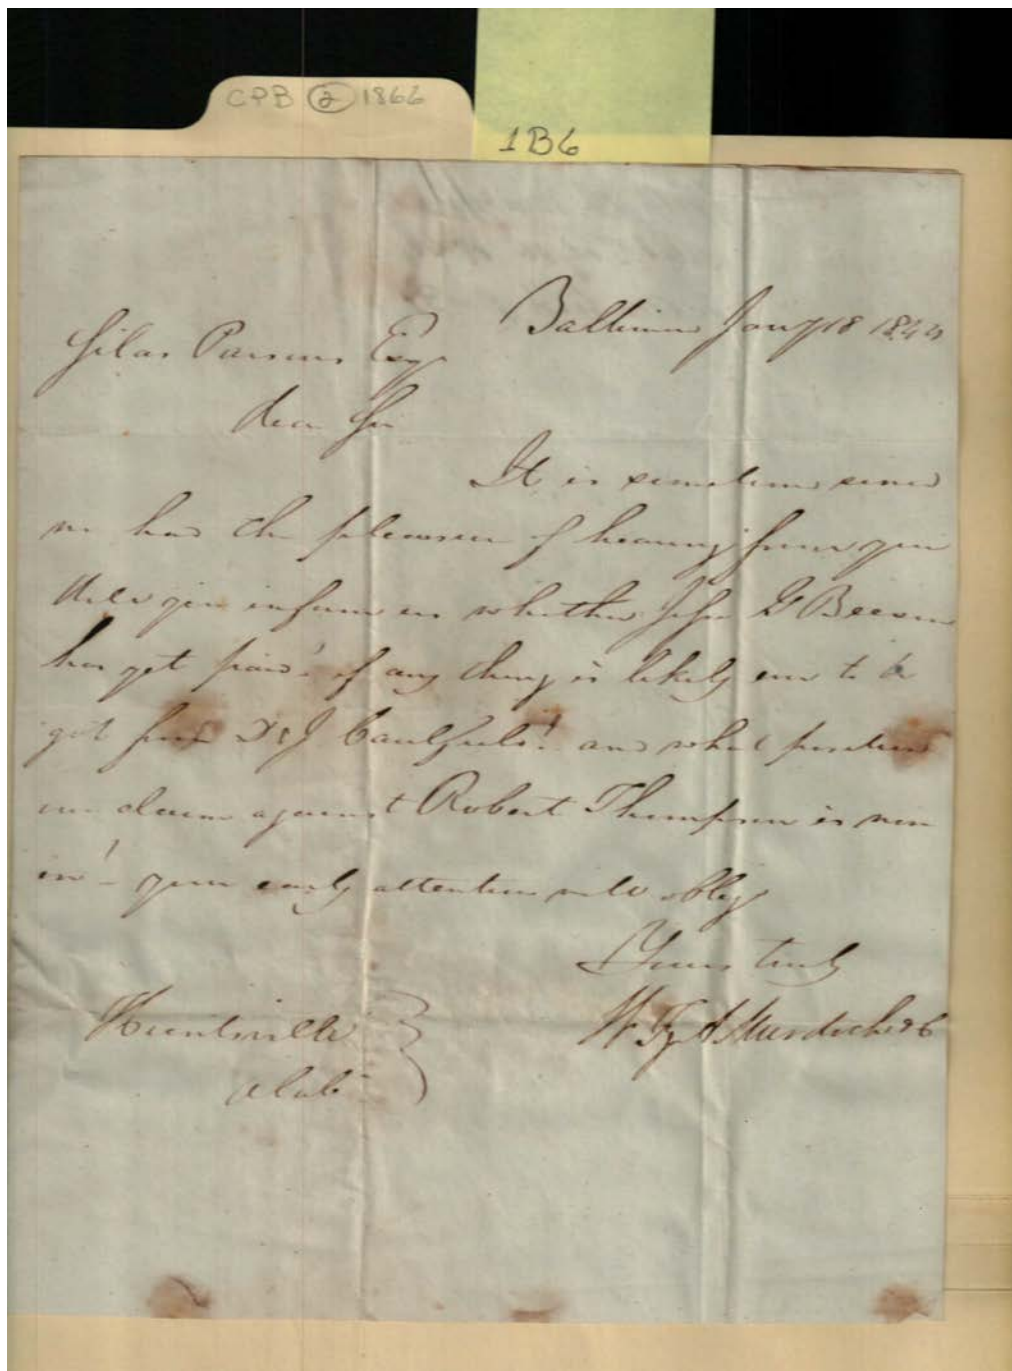 CPB 2 1866
1B6
Baltimore Jany 18 1844
Silas Parsons Esqr
Dear Sir
It is sometime since
we had the pleasure of hearing from you
Will you inform us whether John G Beeson
has yet paid? if any thing is likely ever to be
got from D & J Caulfield? and what position
our claim against Robert Thompson is now
in? – your early attention will oblige
Yours truly
Murdoch & Co
Huntsville
Alab